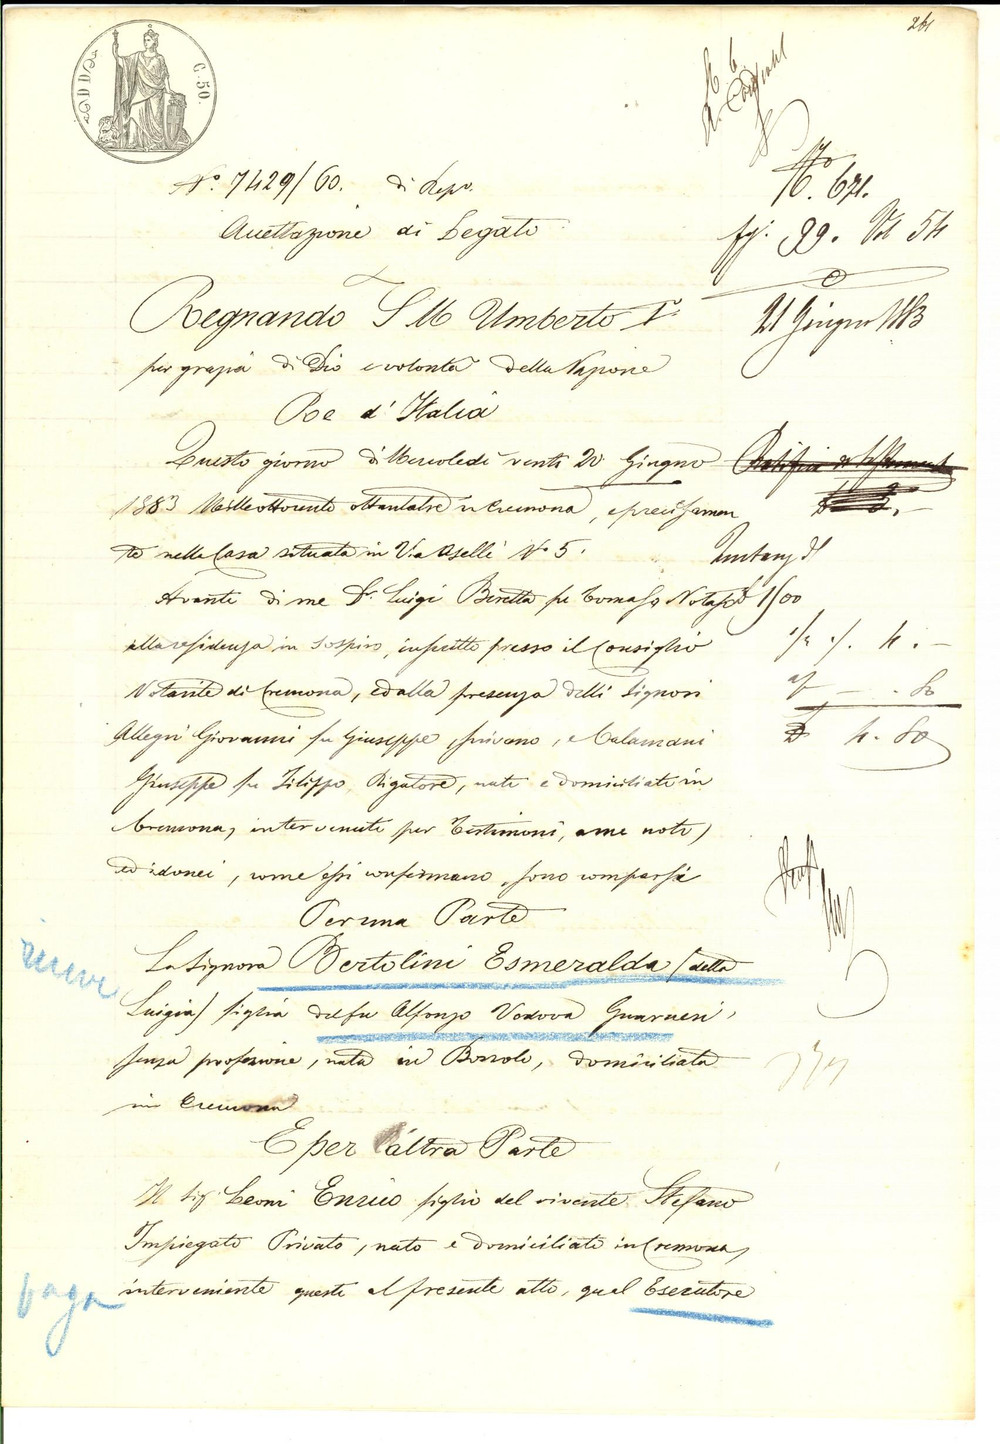 261
C. 50.
No. 7429/60. di Rep.
Accettazione di Legato
No. 671.
fg. 99. Vol 54
21 Giugno 1883
Regnando S M Umberto I°
per grazia di Dio e volontà della Nazione
Re d'Italia
Questo giorno di Mercoledi venti 20 Giugno
1883 Milleottocento ottantatre in Cremona, e precisamen
te nella Casa situata in Via Aselli N° 5.
Avanti di me Dr. Luigi Beretta fu Tomaso Notajo
alla residenza in Sospiro, inscritto presso il Consiglio
Notarile di Cremona, ed alla presenza delli Signori
Allegri Giovanni fu Giuseppe, scrivano, e Calamani
Giuseppe fu Filippo, Rigatore, nati e domiciliati in
Cremona, intervenuti per Testimoni, a me noti,
ed idonei, come essi confermano, sono comparsi
1500
4. -
- . 80
4. 80
Per una Parte
riceve
La Signora Bertolini Esmeralda (detta
Luigia) figlia del fu Alfonso Vedova Guarneri,
senza professione, nata in Bozzolo, domiciliata
in Cremona
E per l'altra Parte
Il Sig. Leoni Enrico figlio del vivente Stefano
Impiegato Privato, nato e domiciliato in Cremona,
paga
interveniente questi al presente atto, qual Esecutore